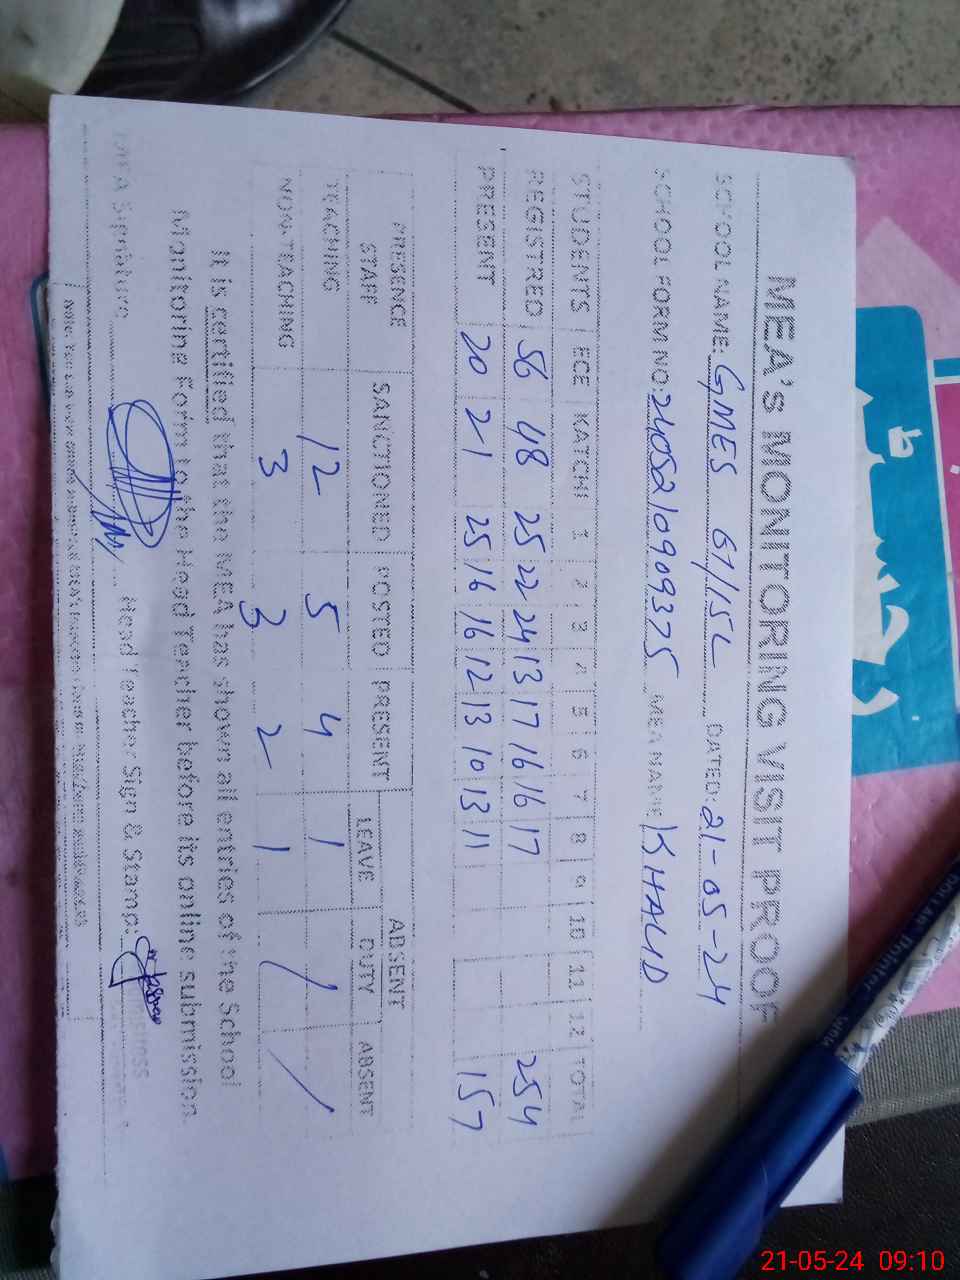 MEA's MONITORING VISIT PROOF
SCHOOL NAME: GMES 61/15L DATED: 21-05-24
SCHOOL FORM NO: 2405210909375 MEA NAME KHALID
STUDENTS ECE KATCHI 1 2 3 4 5 6 7 8 9 10 11 12 TOTAL
REGISTRED 56 48 25 22 24 13 17 16 16 17 254
PRESENT 20 21 25 16 16 12 13 10 13 11 157
PRESENCE STAFF SANCTIONED POSTED PRESENT ABSENT
LEAVE DUTY ABSENT
TEACHING 12 5 4 1 /
NON TEACHING 3 3 2 1 / /
It is certified that the MEA has shown all entries of the School
Monitoring Form to the Head Teacher before its online submission.
MEA Signature Head Teacher Sign & Stamp:
DOLLAR Pointer
21-05-24 09:10